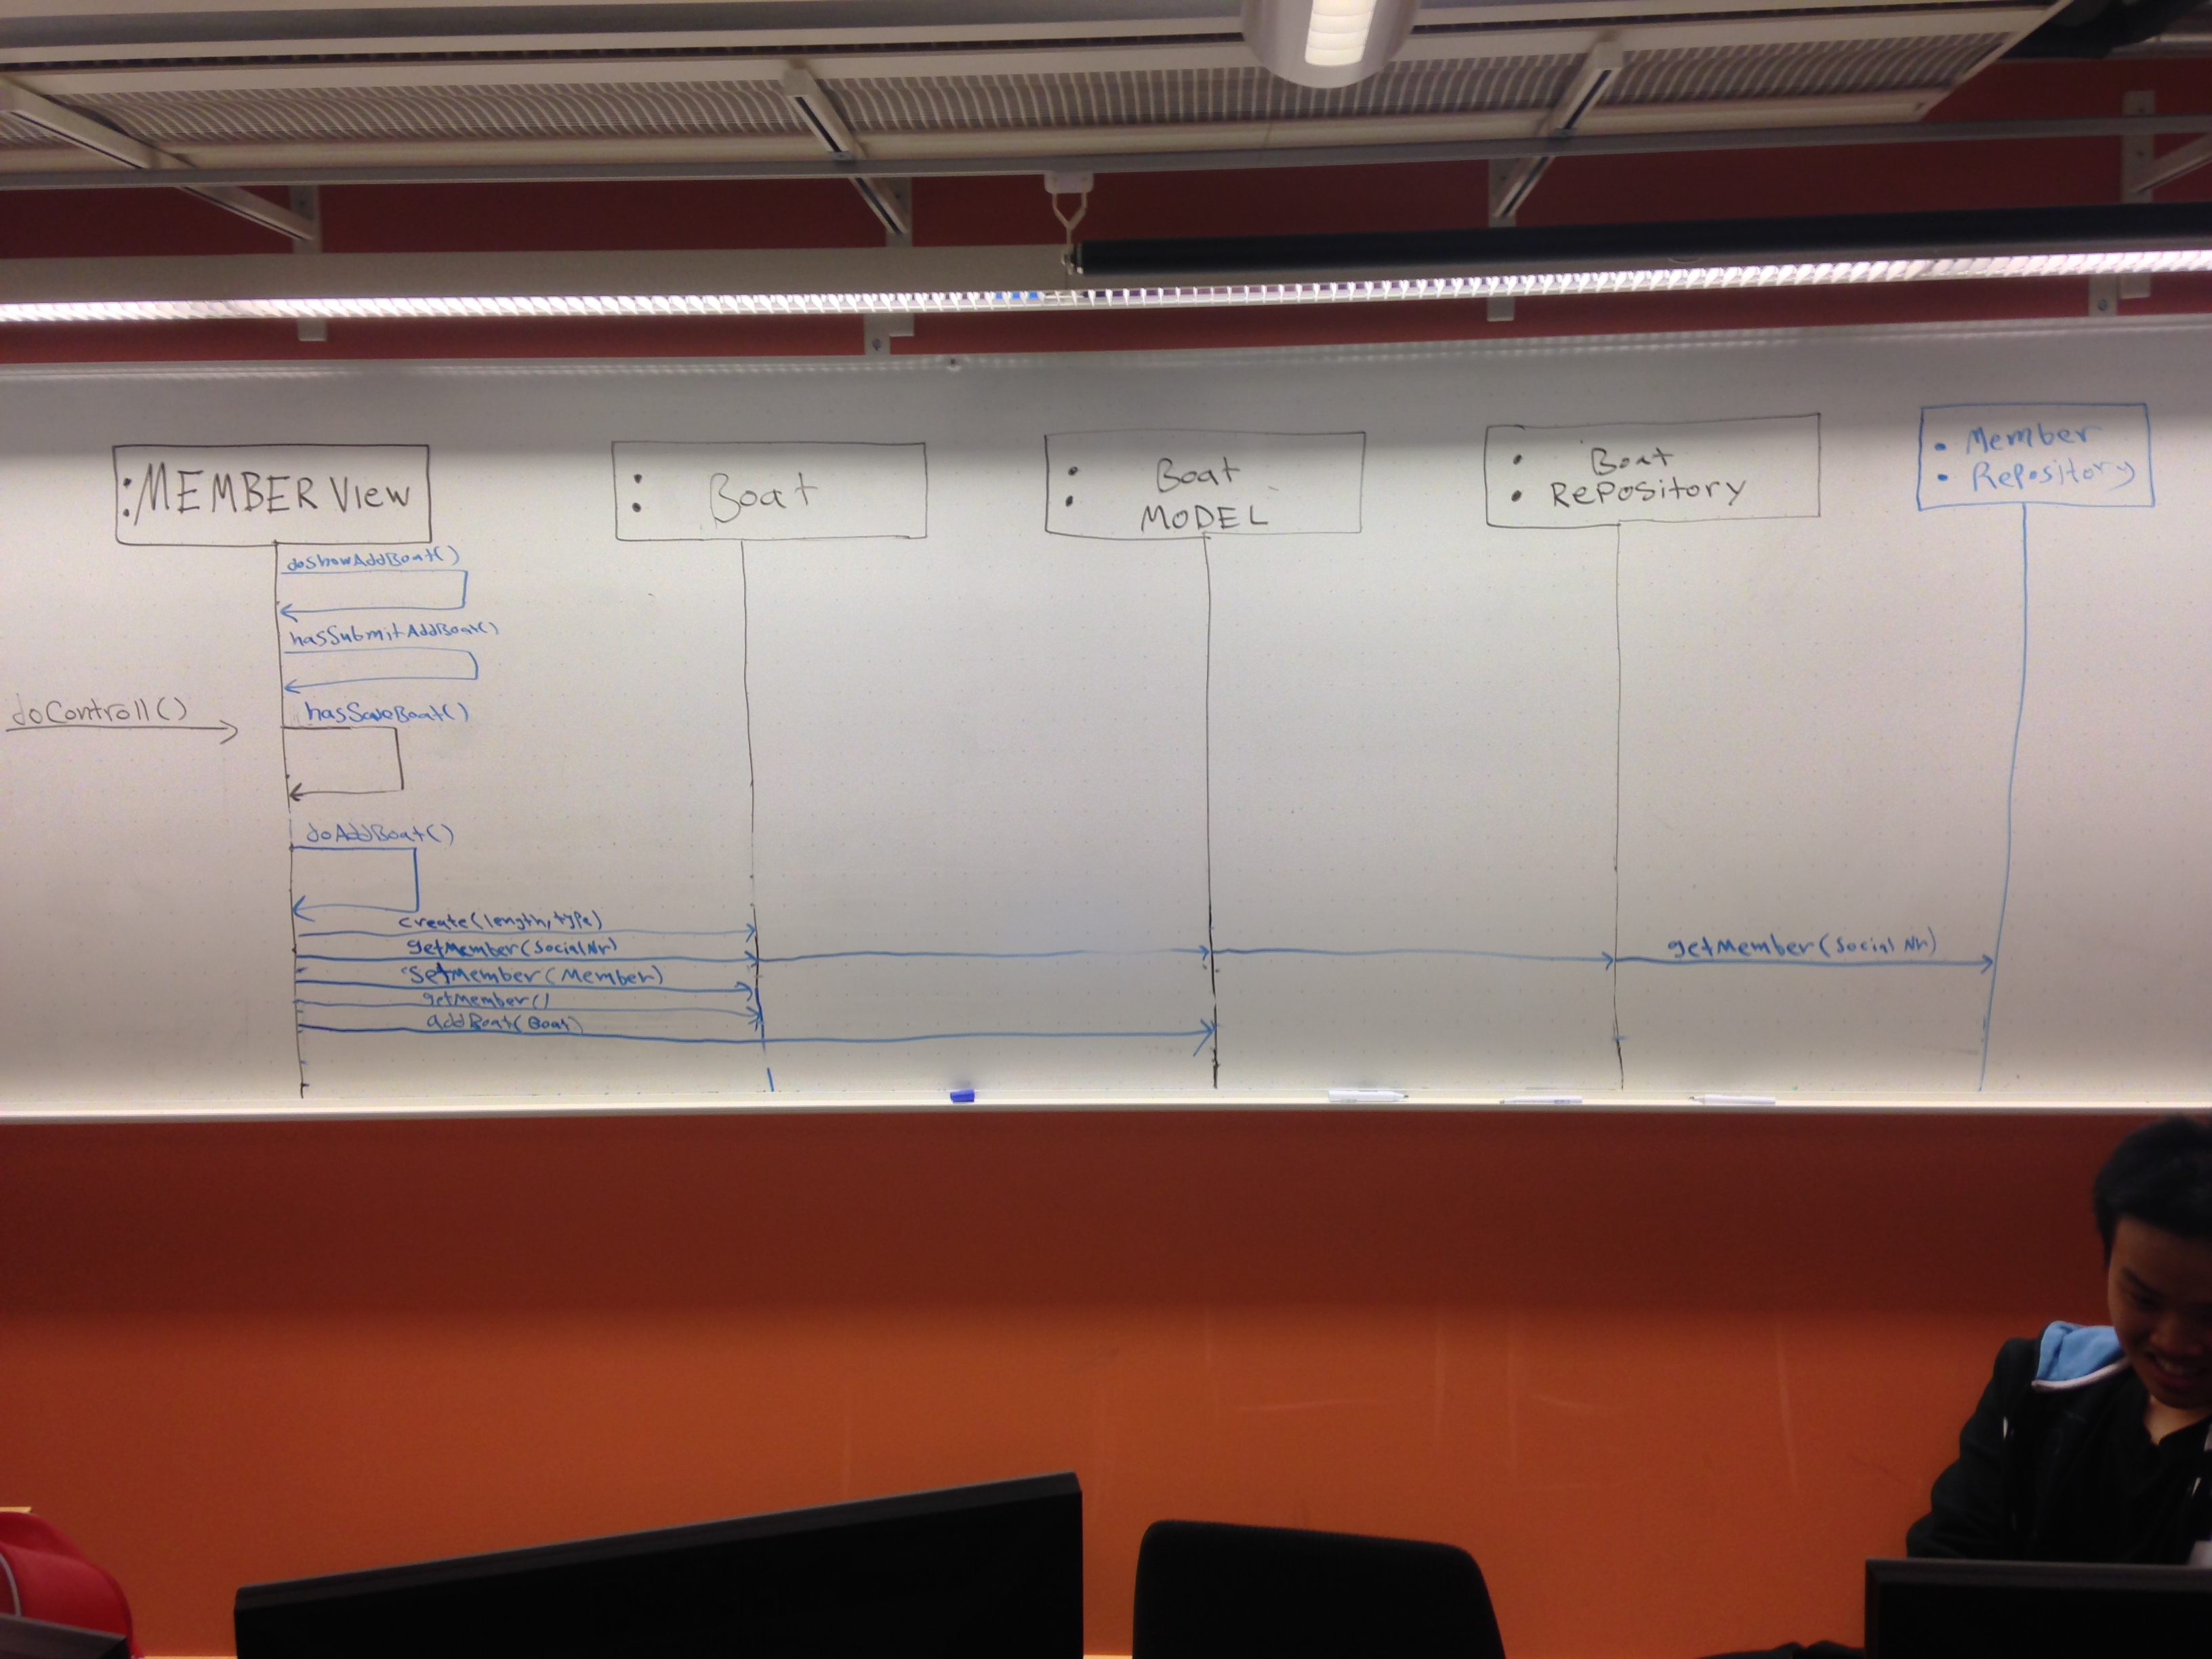 :MEMBER View
: Boat
: Boat
MODEL
: Boat
Repository
: Member
Repository
doShowAddBoat()
hasSubmitAddBoat()
doControll()
hasSaveBoat()
doAddBoat()
create(length,type)
getMember(SocialNr)
getMember(Social Nr)
SetMember(Member)
getMember()
addBoat(Boat)